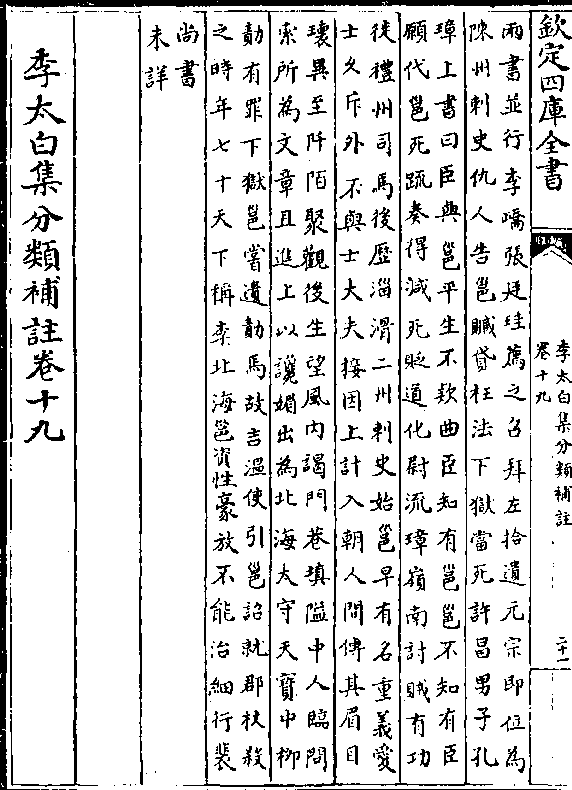 欽定四庫全書
李太白集分類補註
卷十九
二十一
兩書並行李嶠張廷珪薦之召拜左拾遺元宗即位為
陳州刺史仇人告邕贓貸枉法下獄當死許昌男子孔
璋上書曰臣與邕平生不欵曲臣知有邕邕不知有臣
願代邕死疏奏得減死貶遵化尉流璋嶺南討賊有功
徙禮州司馬後歷淄滑二州刺史始邕早有名重義愛
士久斥外不與士大夫接因上計入朝人間傳其眉目
瓌異至阡陌聚觀後生望風內謁門巷填隘中人臨問
索所為文章且進上以讒媚出為北海太守天寶中柳
勣有罪下獄邕嘗遺勣馬故吉溫使引邕詔就郡杖殺
之時年七十天下稱李北海邕資性豪放不能治細行裴
尚書
未詳
李太白集分類補註卷十九